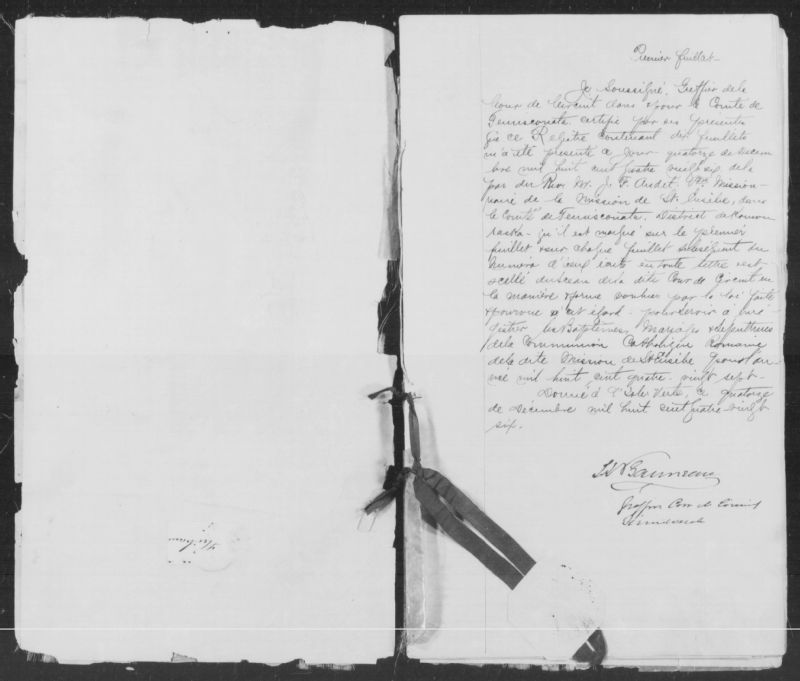 Premier feuillet
Je Soussigné, Greffier de la
Cour de Circuit dans & pour le Comté de
Temiscouata certifie par ces présentes
que ce Régistre contenant dix feuillets
m'a été présenté ce jour quatorze de Décem
bre mil huit cent quatre vingt six de la
par du Rev. M. J. F. Audet, Ptre Mission-
naire de la Mission de St. Eusèbe, dans
le Comté de Temiscouata, District de Kamou
raska - qu'il est marqué sur le premier
feuillet & sur chaque feuillet subséquent du
numéro d'iceux écrits en toute lettre & est
scellé du sceau de la dite Cour de Circuit en
la manière & forme voulues par la loi faite
& pourvue à cet égard - pour servir à enre
gistrer les Baptêmes, Mariages & sépultures
de la Communion Catholique Romaine
de la dite Mission de St Eusèbe pour l'an-
née mil huit cent quatre-vingt sept -
Donné à l'Isle Verte, ce quatorze
de Décembre mil huit cent quatre-vingt
six.
Greffier Cour de Circuit
Témiscouata